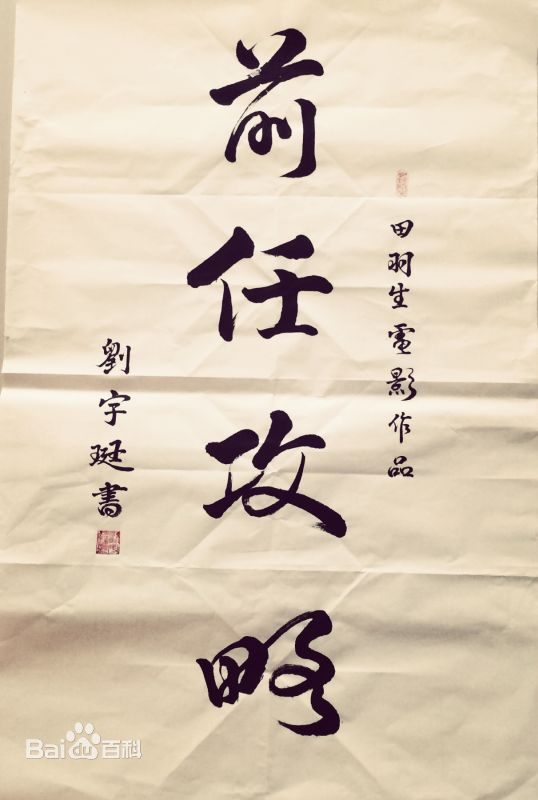 田羽生電影作品
前任攻略
劉宇珽書
Baidu百科